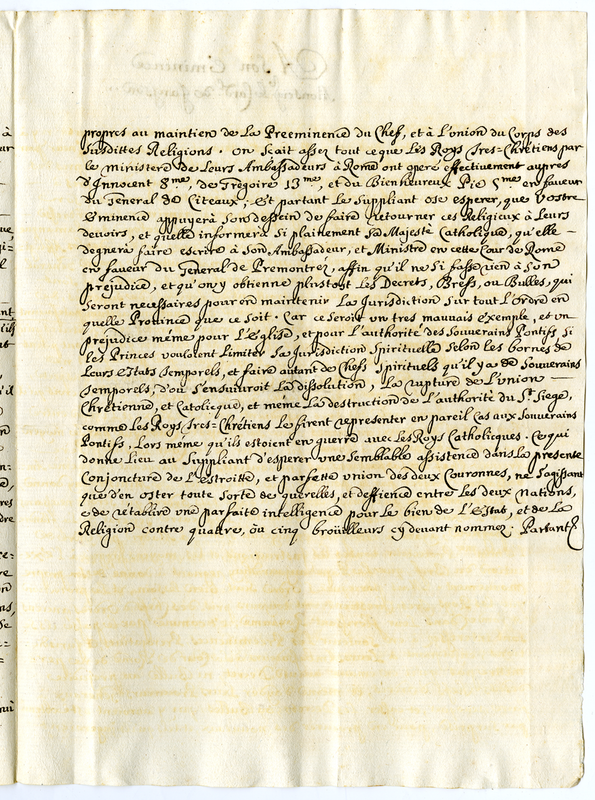 propres au maintien de La Preeminence du Chef, et à L'union du Corps des
susdittes Religions. On scait assez tout ce que Les Roys Tres-Chrêtiens par
le ministere de Leurs Ambassadeurs à Rome ont operé effectivement aupres
d'Innocent 8me, de Gregoire 13me, et du Bienheureux Pie 5me en faveur
du General de Citeaux; Et partant Le Suppliant ose esperer, que Vostre
Eminence appuyerà son dessein de faire retourner ces Religieux à Leurs
devoirs, et qu'elle informerà si plainement Sa Majesté Catholique, qu'elle
degnerà faire escrire à Son Ambassadeur, et Ministre en cette Cour de Rome
en faveur du General de Premontréz, affin qu'il ne Si fasse rien à Son
prejudice, et qu'on y obtienne plustost Les Decrets, Brefs, ou Bulles, qui
seront necessaires pour en maintenir La Jurisdiction Sur tout L'Ordre en
quelle Province que ce soit. Car ce seroit un tres mauvais exemple, et un
prejudice méme pour L'Eglise, et pour L'authorité des Souverains Pontifs, si
les Princes vouloient Limiter Sa Jurisdiction Spirituelle Selon les bornes de
Leurs Estats Temporels, et faire autant de Chefs Spirituels qu'il y a de Souverains
Temporels, d'où S'ensuivroit La dissolution, La rupture de L'union
Chrêtienne, et Catolicque, et méme La destruction de L'authorité du St. Siege,
comme Les Roys Tres-Chrêtiens Le firent representer en pareil cas aux Souverains
Pontifs, Lors méme qu'ils estoient en guerre avec Les Roys Catholicques. Ce qui
donne Lieu au Suppliant d'esperer une Semblable assistence dans La presente
Conjoncture de L'estroitte, et parfette union des deux Couronnes, ne s'agissant
que d'en oster toute Sorte de querelles, et deffience entre Les deux Nations,
e de rétablire une parfaite intelligence pour le bien de L'Estat, et de La
Religion contre quattre, ou cinq broüilleurs cy devant nommez. Partant